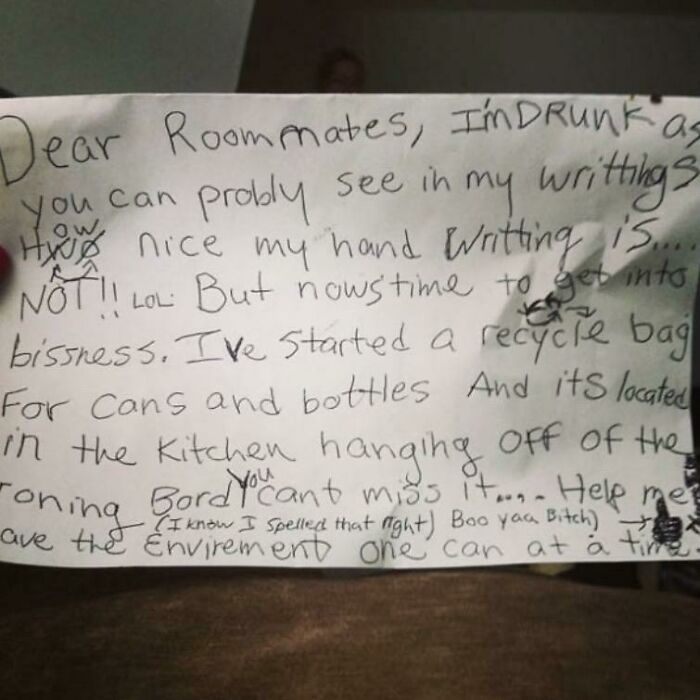 Dear Roommates, I'm DRUNK as
you can probly see in my writtings
How nice my hand Writting is....
NOT!! LOL. But nows time to get into
bissness. I've started a recycle bag
For cans and bottles And its located
in the kitchen hanging off of the
roning Bord you cant miss it.... Help me
(I know I spelled that right) Boo yaa Bitch)
ave the Envirement one can at a time.